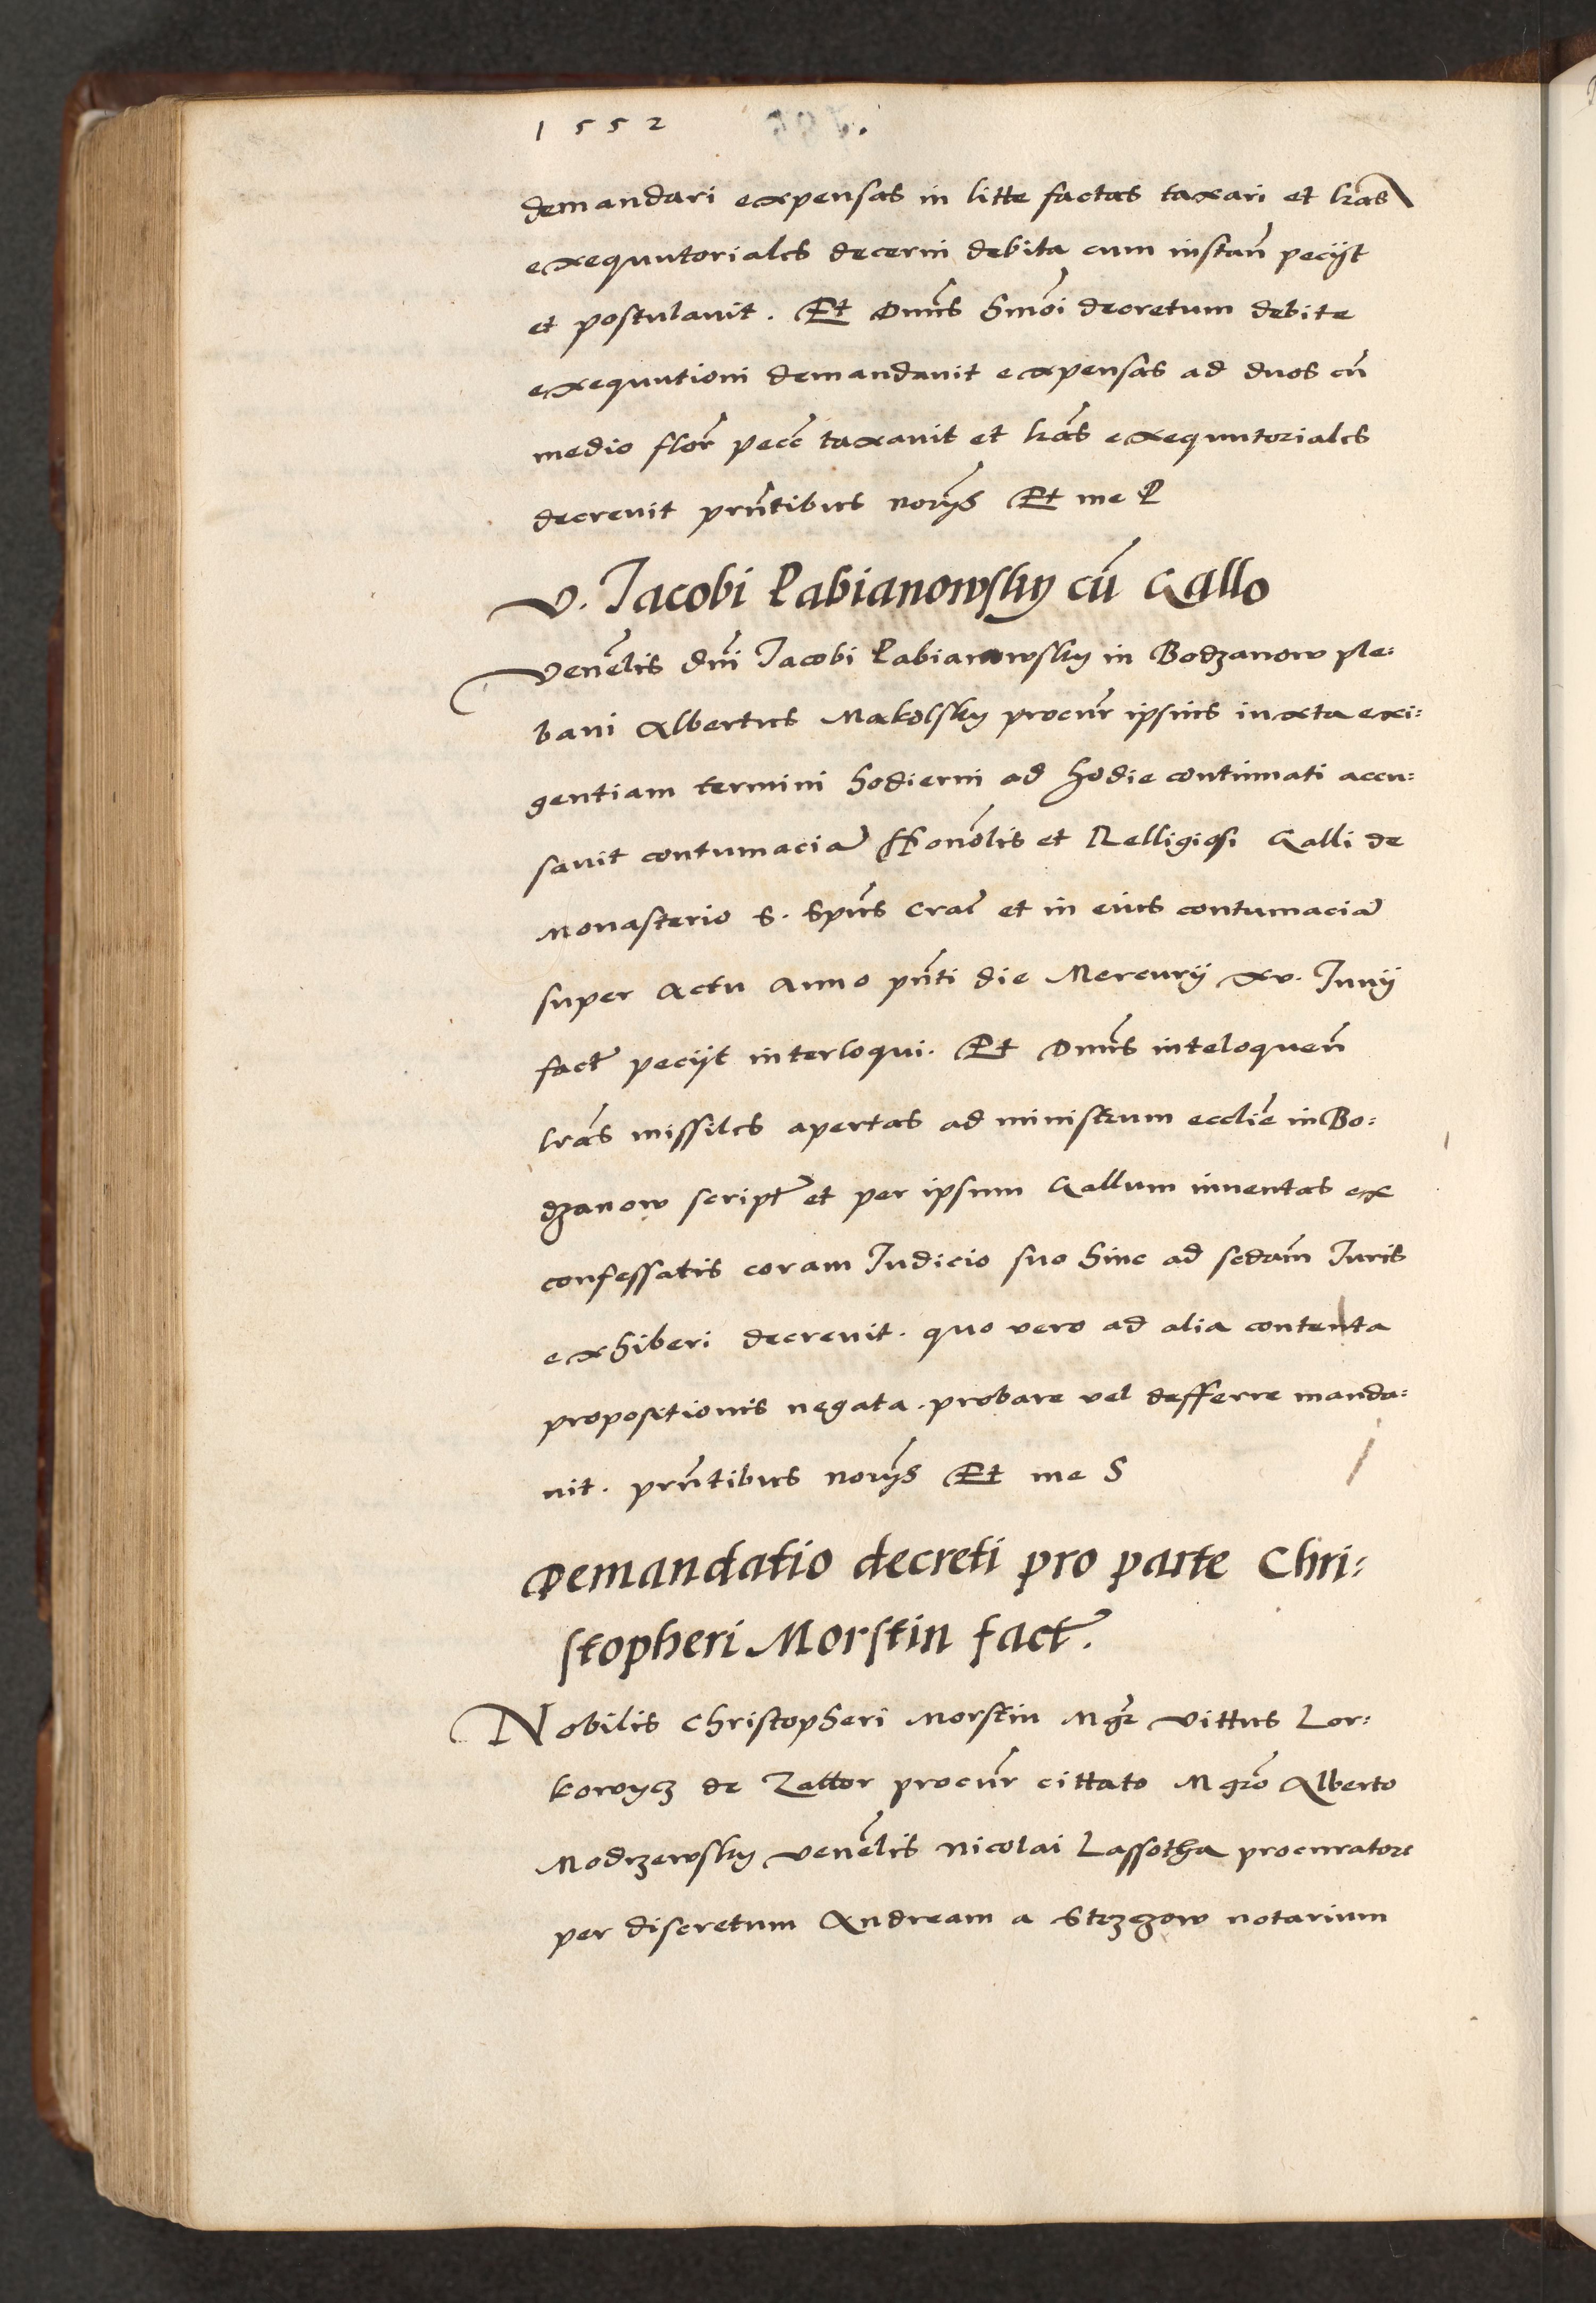 1552
demandari expensas in litte factas taxari et lrãs
exequutoriales decerni debita cum instañ pecijt
et postulavit. Et Dnũs hmõi decretum debite
exequutioni demandavit expensas ad duos cũ
medio flor̃ pecc̃ taxavit et lrãs exequutoriales
decrevit prñtibus norijs̃ Et me P
V. Jacobi Pabianowsky cũ Gallo
Venẽlis dnĩ Jacobi Pabianowsky in Bodzanow ple:
bani Albertus Makolsky procur̃ ipsius iuxta exi:
gentiam termini hodierni ad hodie continuati accu:
savit contumaciã Honõlis et Relligiosi Galli de
Monasterio S. Spũs Crac̃ et in eius contumaciã
super Actu Anno pñti die Mercurij xv. Junij
fact̃ pecijt interloqui. Et Dnũs inteloqueñ
lrãs missiles apertas ad ministrum ecclĩe in Bo:
dzanow script̃ et per ipsum Gallum inventas ex
confessatis coram Judicio suo hinc ad sedam̃ Juris
exhiberi decrevit. quo vero ad alia contenta
propositionis negata. probare vel defferre manda:
vit. prñtibus norijs̃ Et me S
Demandatio decreti pro parte Chri:
stopheri Morstin fact̃.
Nobilis Christopheri Morstin Mgr̃ Vittus Lor:
kowycz de Zattor procur̃ cittato Mgrõ Alberto
Modrzewsky venẽlis Nicolai Lassotha procuratore
per discretum Andream a Strzegow notarium